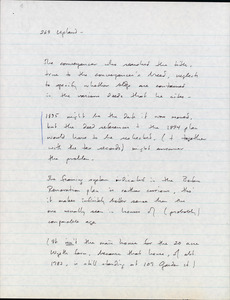 268 Upland -
The conveyancer who searched the title,
true to the conveyancer's breed, neglects
to specify whether bldgs. are contained
in the various deeds that he cites.
1835 might be the date it was moved,
but the deed references + the 1894 plan
would have to be rechecked, (+ together
with the tax records) might answer
the problem.
The framing system indicated in the
Renovation plan is rather curious, tho
it makes infinitely better sense than the
one usually seen in houses of (probably)
comparable age.
(It isn't the main house for the 20 acre
farm, because that house, of abt.
1782, is still standing at